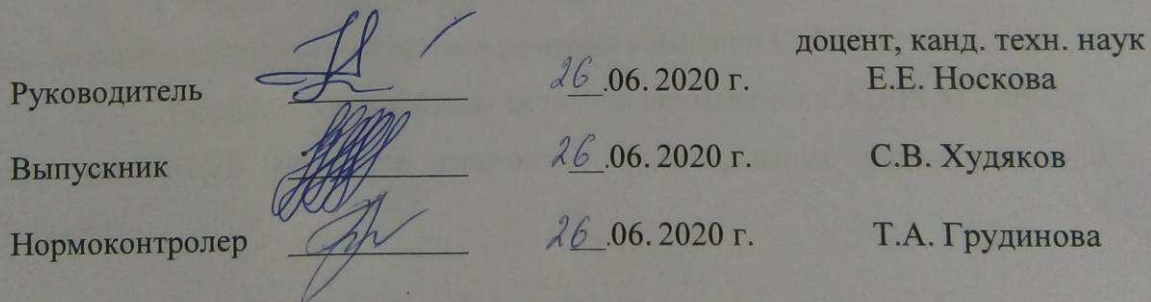 доцент, канд. техн. наук
Руководитель 26.06.2020 г. Е.Е. Носкова
Выпускник 26.06.2020 г. С.В. Худяков
Нормоконтролер 26.06.2020 г. Т.А. Грудинова